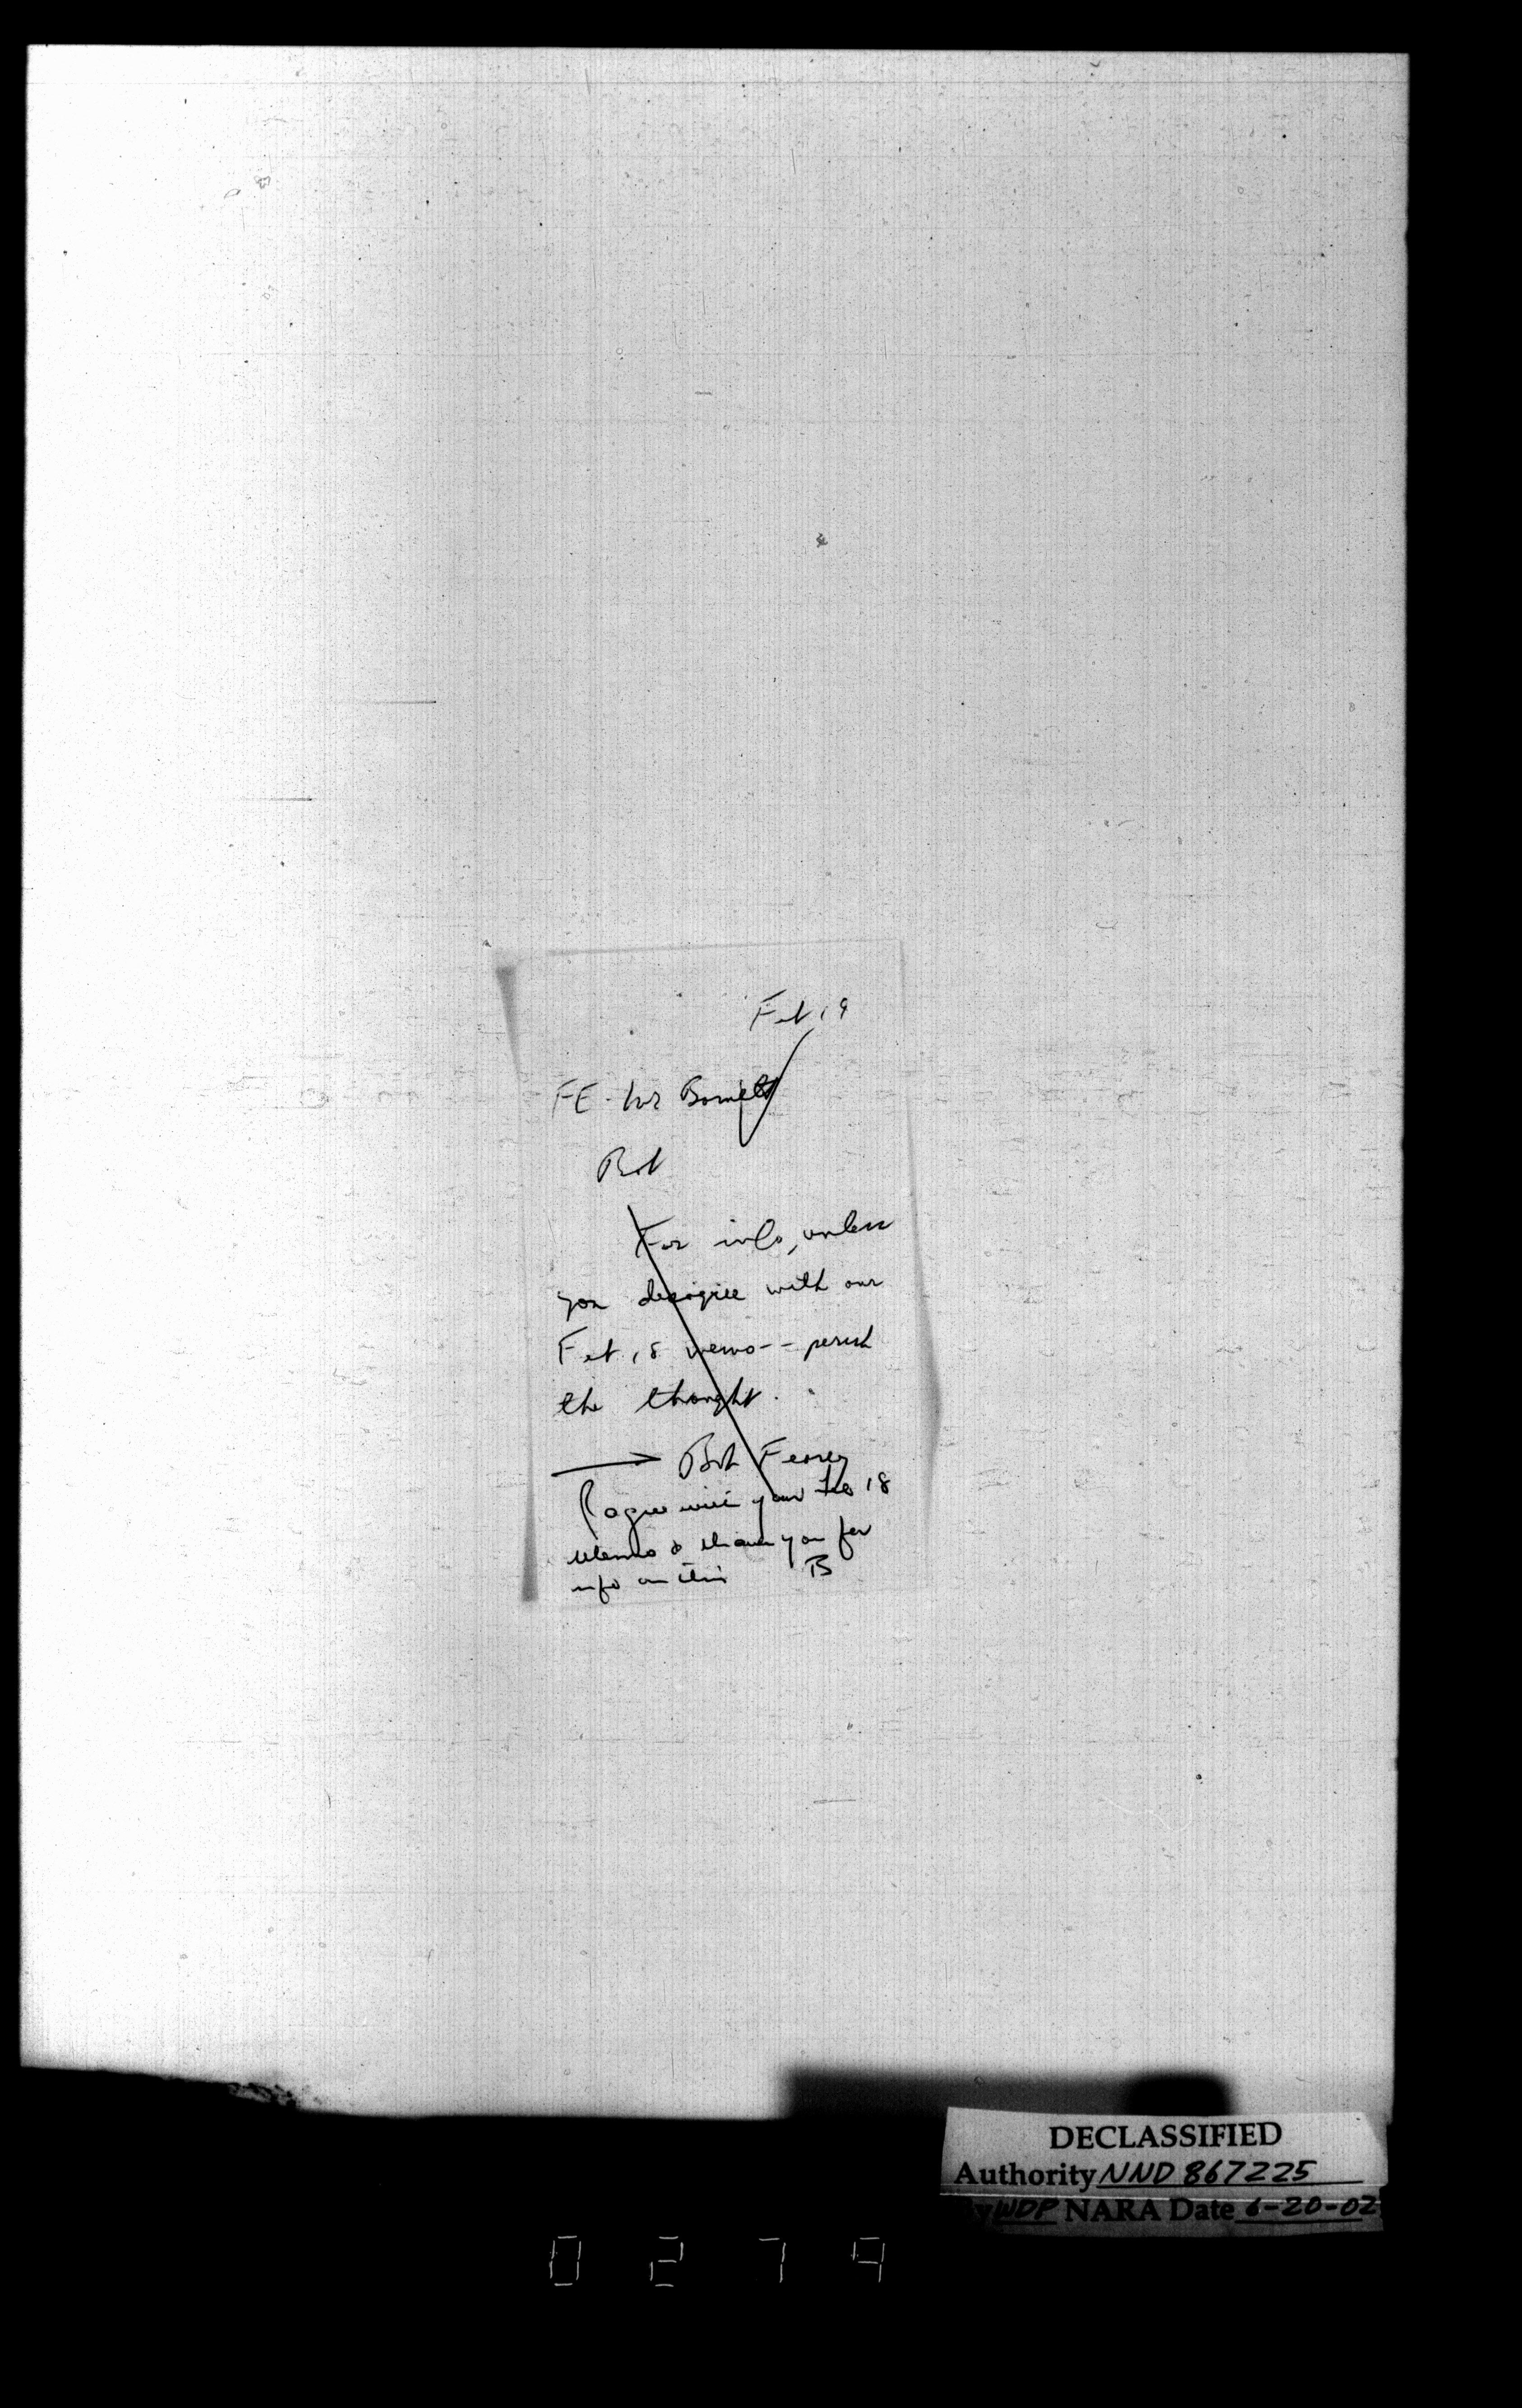 Feb 19
FE - Mr Barnett
Bob
For info, unless
you disagree with our
Feb 18 memo -- perish
the thought.
Bob Fearey
I agree with your Feb 18
Memo & thank you for
info on this B
DECLASSIFIED
Authority NND 867225
By WDP NARA Date 6-20-02
0279